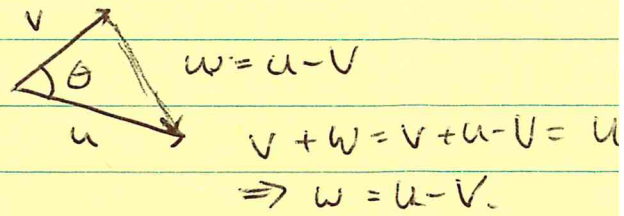 v
θ w = u - v
u
v + w = v + u - v = u
⇒ w = u - v.